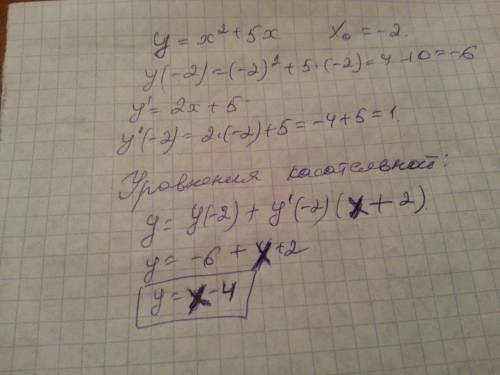 y = x² + 5x    x₀ = -2.
y(-2) = (-2)² + 5·(-2) = 4 - 10 = -6
y' = 2x + 5
y'(-2) = 2·(-2) + 5 = -4 + 5 = 1
Уравнения касательной:
y = y(-2) + y'(-2)(x + 2)
y = -6 + x + 2
y = x - 4